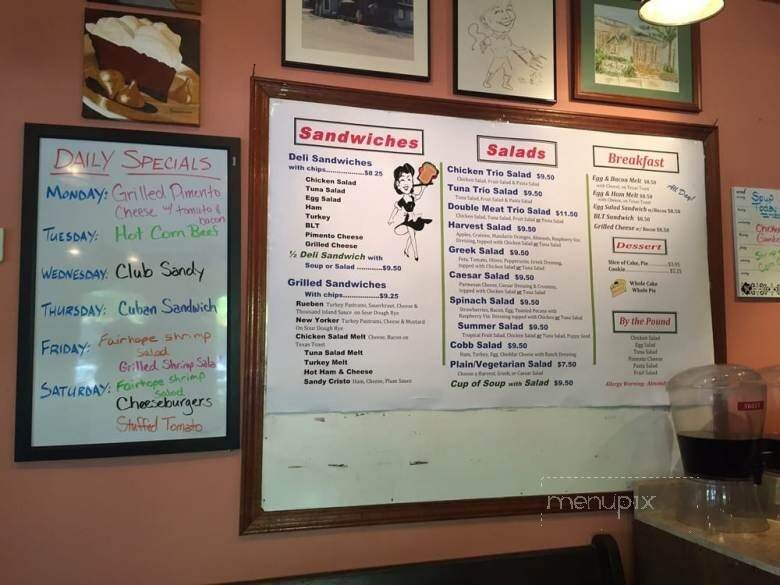 DAILY SPECIALS
MONDAY: Grilled Pimento
Cheese w/ tomato &
bacon
TUESDAY: Hot Corn Beef
WEDNESDAY: Club Sandy
THURSDAY: Cuban Sandwich
FRIDAY: Fairhope shrimp
Salad
Grilled Shrimp Salad
SATURDAY: Fairhope shrimp
Salad
Cheeseburgers
Stuffed Tomato
Sandwiches
Deli Sandwiches
with chips..................$8.25
Chicken Salad
Tuna Salad
Egg Salad
Ham
Turkey
BLT
Pimento Cheese
Grilled Cheese
½ Deli Sandwich with
Soup or Salad............$9.50
Grilled Sandwiches
With chips..................$9.25
Rueben Turkey Pastrami, Sauerkraut, Cheese &
Thousand Island Sauce on Sour Dough Rye
New Yorker Turkey Pastrami, Cheese & Mustard
On Sour Dough Rye
Chicken Salad Melt Cheese, Bacon on
Texas Toast
Tuna Salad Melt
Turkey Melt
Hot Ham & Cheese
Sandy Cristo Ham, Cheese, Plum Sauce
Salads
Chicken Trio Salad $9.50
Chicken Salad, Fruit Salad & Pasta Salad
Tuna Trio Salad $9.50
Tuna Salad, Fruit Salad & Pasta Salad
Double Meat Trio Salad $11.50
Chicken Salad, Tuna Salad, Fruit Salad or Pasta Salad
Harvest Salad $9.50
Apples, Craisins, Mandarin Oranges, Almonds, Raspberry Vin.
Dressing, topped with Chicken Salad or Tuna Salad
Greek Salad $9.50
Feta, Tomato, Olives, Pepperoncini, Greek Dressing,
topped with Chicken Salad or Tuna Salad
Caesar Salad $9.50
Parmesan Cheese, Caesar Dressing & Croutons,
topped with Chicken Salad or Tuna Salad
Spinach Salad $9.50
Strawberries, Bacon, Egg, Toasted Pecans with
Raspberry Vin. Dressing topped with Chicken Salad or Tuna Salad
Summer Salad $9.50
Tropical Fruit, Chicken Salad or Tuna Salad, Poppy Seed
Cobb Salad $9.50
Ham, Turkey, Egg, Cheddar Cheese with Ranch Dressing
Plain/Vegetarian Salad $7.50
Choose a Harvest, Greek, or Caesar Salad
Cup of Soup with Salad $9.50
Breakfast
All Day!
Egg & Bacon Melt $8.50
with Cheese, on Texas Toast
Egg & Ham Melt $8.50
with Cheese, on Texas Toast
Egg Salad Sandwich w/Bacon $8.50
BLT Sandwich $8.50
Grilled Cheese w/ Bacon $8.50
Dessert
Slice of Cake, Pie
Cookie
Whole Cake
Whole Pie
By the Pound
Chicken Salad
Egg Salad
Tuna Salad
Pimento Cheese
Pasta Salad
Fruit Salad
Allergy Warning:
Soup
menupix